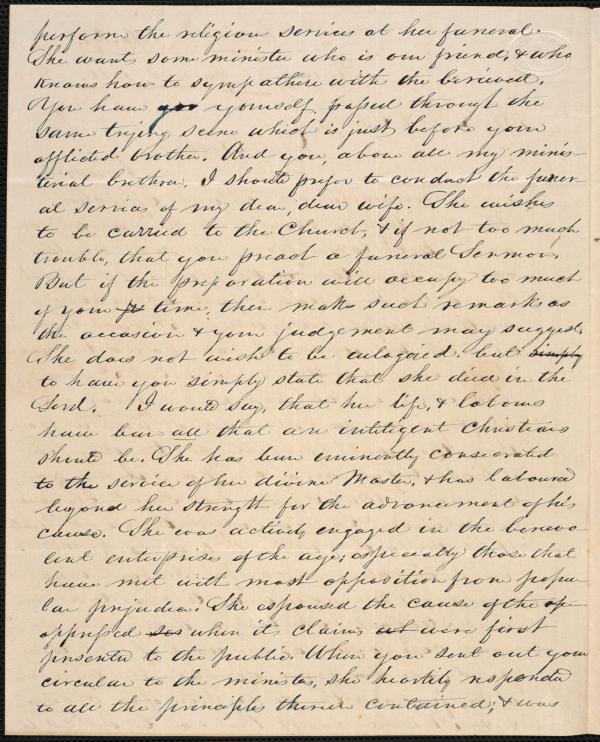 perform the religious services at her funeral.
She wants some minister who is our friend, & who
knows how to sympathise with the berieved.
You have you yourself, passed through the
same trying scene which is just before your
afflicted brother. And you, above all my minis-
terial brethren, I should prefer to conduct the funer-
al services of my dear, dear wife. She wishes
to be carried to the Church, & if not too much
trouble, that you preach a funeral Sermon.
But if the preparation will occupy too much
of your time, then make such remarks as
the occasion & your judgement may suggest.
She does not wish to be eulogized. but simply
to have you simply state that she died in the
Lord. I would say, that her life, & labours
have been all that an intiligent Christians
should be. She has been eminently consecrated
to the service of her divine Master, & has laboured
beyond her strength for the advancement of his
cause. She was actively engaged in the benevo-
lent enterprises of the age; especially those that
have met with most opposition from popu-
lar prejudice. She espoused the cause of the op-
oppressed when its claims were first
presented to the public. When you sent out your
circular to the ministers, she heartily responded
to all the principles therein contained; & was